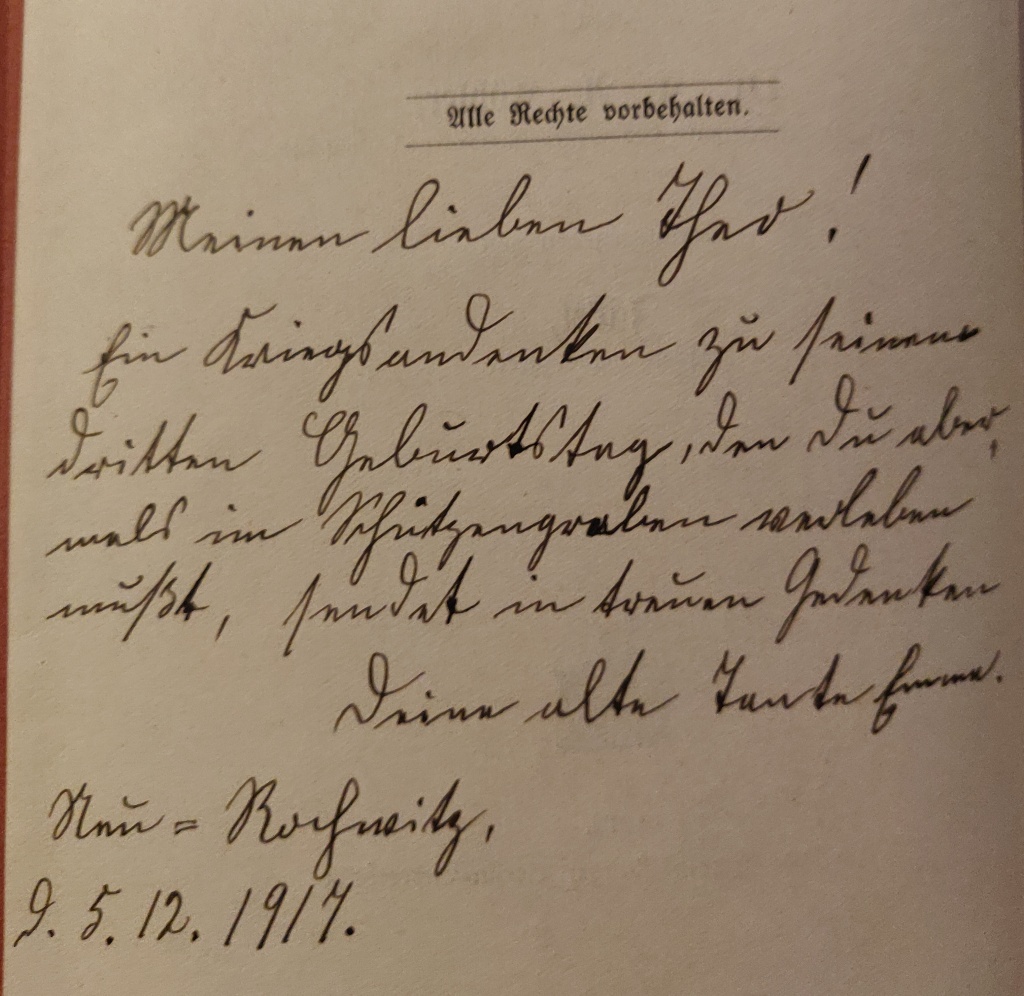 Alle Rechte vorbehalten.
Meinen lieben Theo!
Ein Kriegsandenken zu seinem
dritten Geburtstag, den Du aber„
mals im Schützengraben verleben
mußt, sendet in treuen Gedenken
Deine alte Tante Emma.
Neu = Rochwitz,
d. 5. 12. 1917.